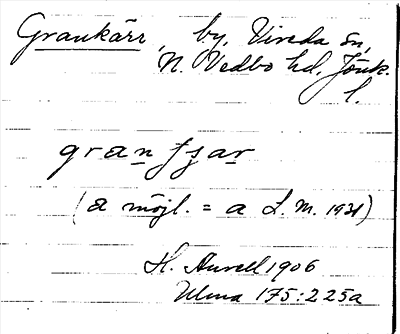 Grankärr, by, Vireda sn,
N. Vedbo hd, Jönk.
l.
granfʒar
(a möjl. = a L. M. 1931)
H. Aurell 1906
Ulma 175:225a